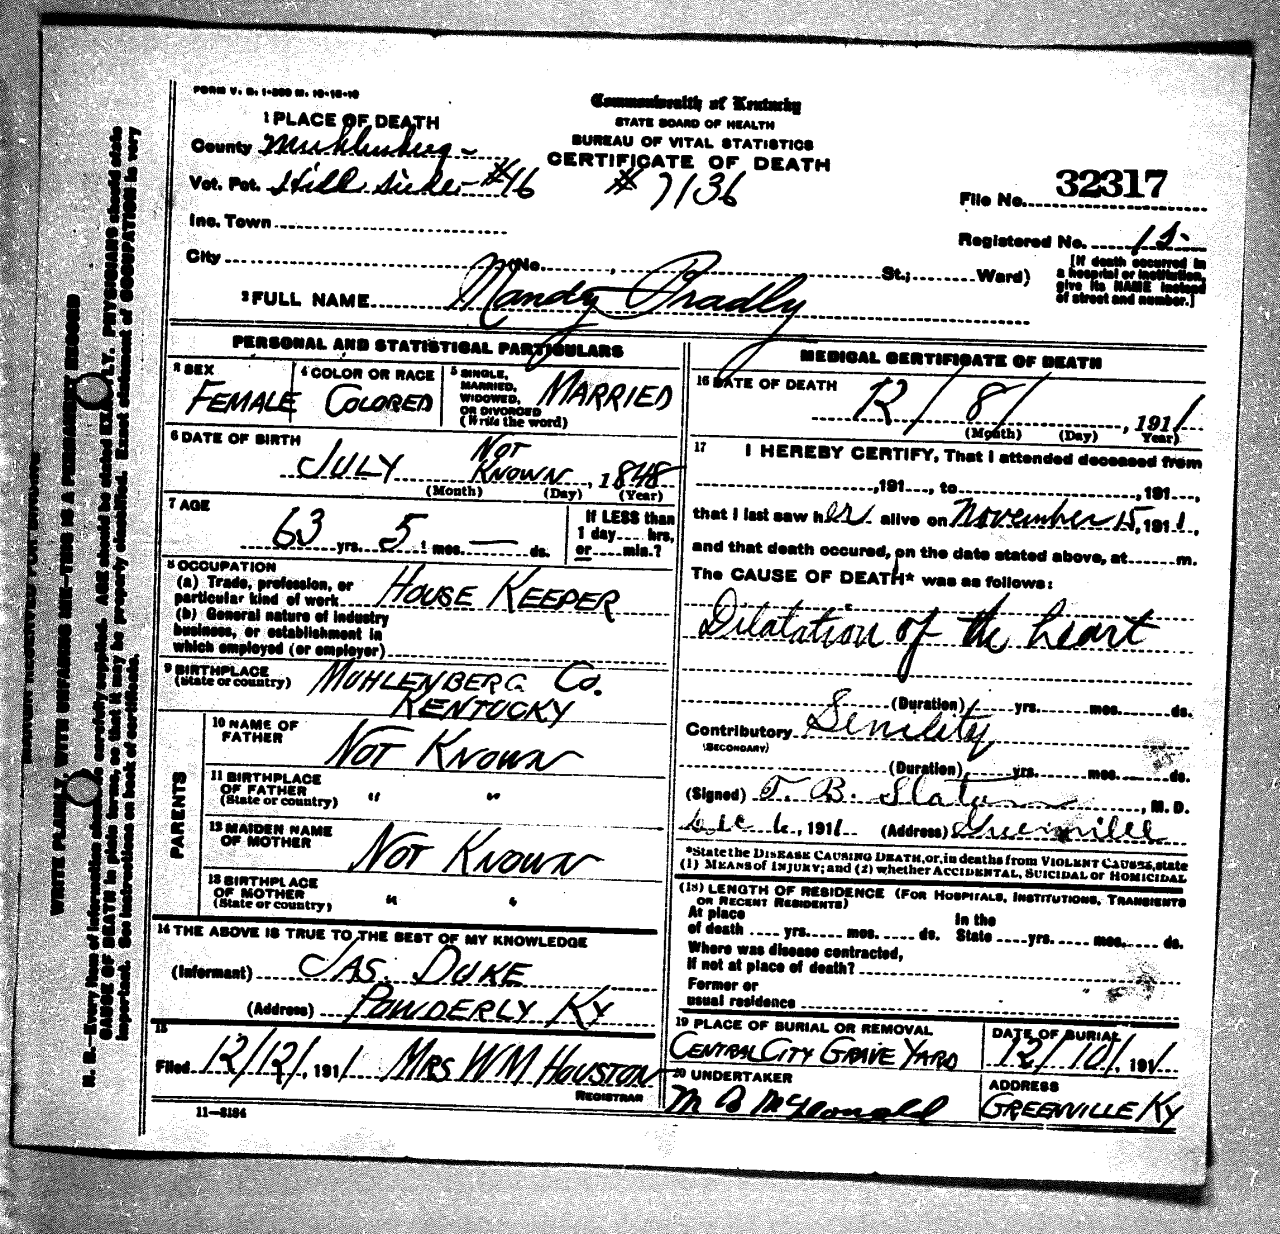 FORM V. S. 1-200 M. 10-16-10
Commonwealth of Kentucky
STATE BOARD OF HEALTH
BUREAU OF VITAL STATISTICS
CERTIFICATE OF DEATH
# 7136
1 PLACE OF DEATH
County Muhlenberg
Vot. Pct. Hill Side #16
Inc. Town
City No. , St.; Ward)
File No. 32317
Registered No. 15
[If death occurred in
a hospital or institution,
give its NAME instead
of street and number.]
2 FULL NAME Mandy Bradly
PERSONAL AND STATISTICAL PARTICULARS
3 SEX
FEMALE
4 COLOR OR RACE
COLORED
5 SINGLE,
MARRIED,
WIDOWED,
OR DIVORCED
(Write the word)
MARRIED
6 DATE OF BIRTH
JULY NOT KNOWN, 1848
(Month) (Day) (Year)
7 AGE
63 yrs. 5 mos. — ds.
If LESS than
1 day hrs.
or min.?
8 OCCUPATION
(a) Trade, profession, or
particular kind of work HOUSE KEEPER
(b) General nature of industry
business, or establishment in
which employed (or employer)
9 BIRTHPLACE
(State or country) MUHLENBERG CO.
KENTUCKY
PARENTS
10 NAME OF
FATHER NOT KNOWN
11 BIRTHPLACE
OF FATHER
(State or country) " "
12 MAIDEN NAME
OF MOTHER NOT KNOWN
13 BIRTHPLACE
OF MOTHER
(State or country) " "
14 THE ABOVE IS TRUE TO THE BEST OF MY KNOWLEDGE
(Informant) JAS. DUKE
(Address) POWDERLY KY
15
Filed 12/12/, 1911 MRS WM HOUSTON
REGISTRAR
11—3184
MEDICAL CERTIFICATE OF DEATH
16 DATE OF DEATH
12/ 8/ , 1911
(Month) (Day) Year)
17 I HEREBY CERTIFY, That I attended deceased from
,191 , to ,191 ,
that I last saw her alive on November 15, 1911,
and that death occured, on the date stated above, at m.
The CAUSE OF DEATH* was as follows:
Dilatation of the heart
(Duration) yrs. mos. ds.
Contributory Senility
(SECONDARY)
(Duration) yrs. mos. ds.
(Signed) T. B. Slaton, M. D.
, 1911 (Address) Greenville
*State the DISEASE CAUSING DEATH, or, in deaths from VIOLENT CAUSES, state
(1) MEANS of INJURY; and (2) whether ACCIDENTAL, SUICIDAL or HOMICIDAL
(18) LENGTH OF RESIDENCE (FOR HOSPITALS, INSTITUTIONS, TRANSIENTS
OR RECENT RESIDENTS)
At place
of death yrs. mos. ds.
In the
State yrs. mos. ds.
Where was disease contracted,
If not at place of death?
Former or
usual residence
19 PLACE OF BURIAL OR REMOVAL
CENTRAL CITY GRAVE YARD
DATE OF BURIAL
12/10/, 1911
20 UNDERTAKER
M D McDonald
ADDRESS
GREENVILLE KY
MARGIN RESERVED FOR BINDING
WRITE PLAINLY, WITH UNFADING INK—THIS IS A PERMANENT RECORD
N. B.—Every item of information should be carefully supplied. AGE should be stated EXACTLY. PHYSICIANS should state
CAUSE OF DEATH in plain terms, so that it may be properly classified. Exact statement of OCCUPATION is very
important. See instructions on back of certificate.